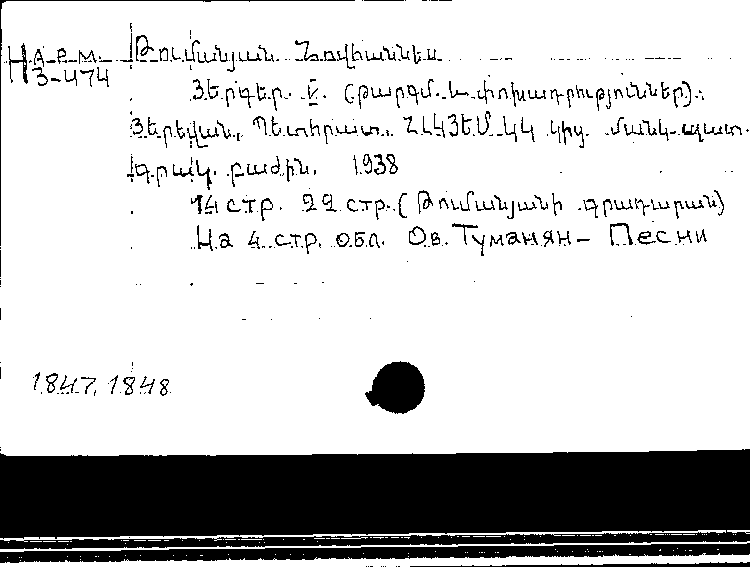 Н А.Р.М. Թումանյան Հովհաննես
3-474
Յերգեր. V. (թարգմ. և փոխադրություններ).
Յերեվան, Պետհրատ, ՀԼԿՅԵՄ ԿԿ կից մանկ-պատ.
գրակ. բաժին. 1938
14 стр. 22 стр. (Թումանյանի գրադարան)
На 4 стр. обл. Ов. Туманян – Песни
1847, 1848